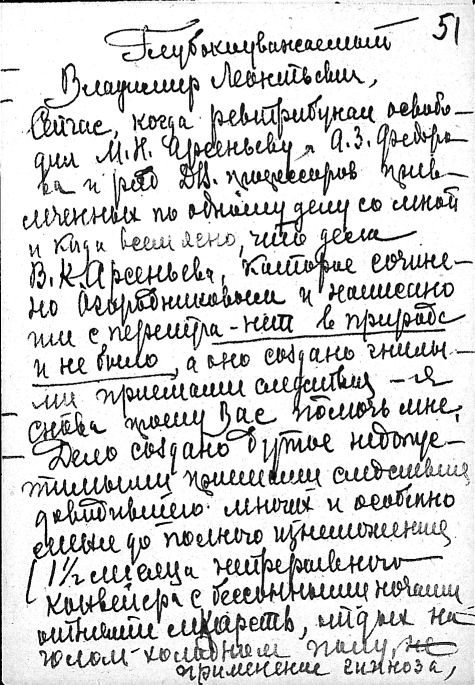 51
Глубокоуважаемый
Владимир Леонтьевич,
Сейчас, когда ревтрибунал освобо-
дил М.Н. Арсеньеву, А.З. Федоро-
ва и ряд ДВ. профессоров прив-
леченных по одному делу со мной
и когда всем ясно, что дела
В.К. Арсеньева, которое сочине-
но и написано
им с перепугу - нет в природе
и не было, а оно создано гнилы-
ми приемами следствия - я
снова прошу Вас помочь мне.
Дело создано недопус-
тимыми приемами следствия
многих и особенно
до полного изнеможения
(1½ месяца непрерывного
конвейера с бессонными ночами
лекарств, отдых на
голом холодном полу,
применение гипноза,